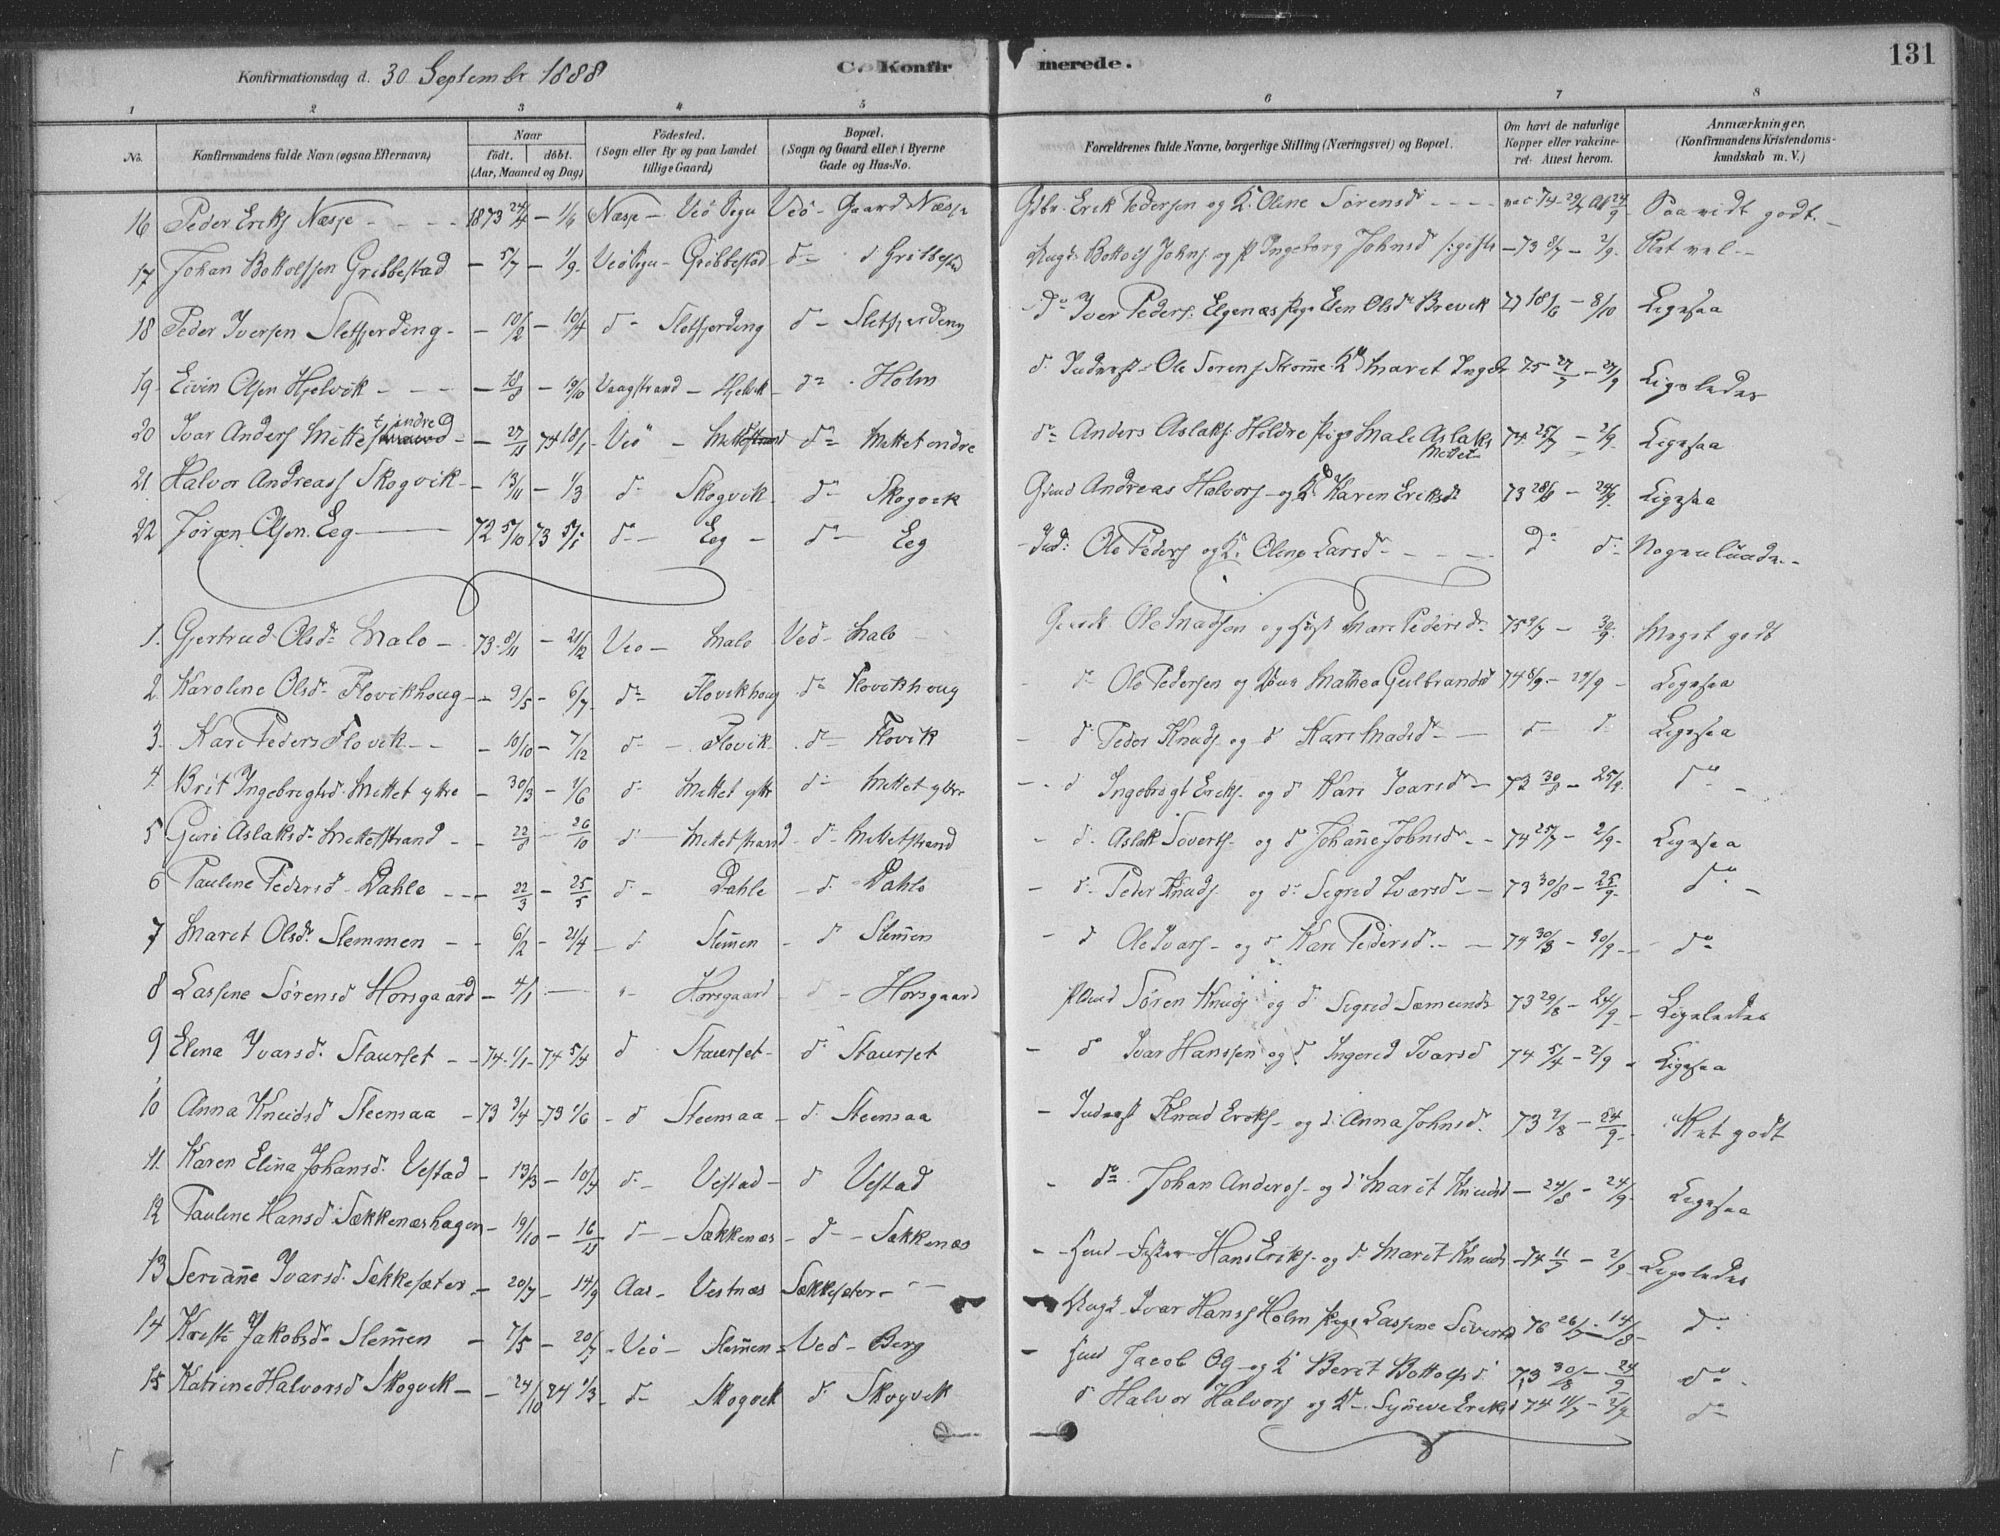 131
Konfirmationsdag d. 30 September 1888 C. Konfirmerede.
1 2 3 4 5 6 7 8
No. Konfirmandens fulde Navn (ogsaa Efternavn) Naar födt. döbt. (Aar, Maaned og Dag) Födested. (Sogn eller By og paa Landet tillige Gaard) Bopæl. (Sogn og Gaard eller i Byerne Gade og Hus-No. Forældrenes fulde Navne, borgerlige Stilling (Næringsvei) og Bopæl. Om havt de naturlige Kopper eller vakcineret. Attest herom. Anmærkninger. (Konfirmandens Kristendomskundskab m. V.)
16 Peder Eriks Næsje - - - 1873 24/4 - 1/6 Næsje - Veö Sogn Veö - Gaard Næsje Gdbr. Erik Pedersen og K. Oline Sörensd - - - vac 74 Saavidt godt -
17 Johan Bottolfssen Gribbestad - 5/7 - 1/9 Veö Sogn - Gribbestad do d Gribbestad Ungk Bottolf Johns og P Ingeborg Johnsd - 73 8/7 - 2/9 Ret vel -
18 Peder Iversen Sletfjerding - - 10/2 - 10/4 do Sletfjerding do - Sletfjerding do Iver Peders. Elgenæs Pige Elen Olsd Brevik 77 18/6 - 8/10 Ligesaa
19 Eivin Olsen Hjelvik - - - - 18/8 - 19/10 Vaagstrand - Hjelvik - do Holm d. Inderst - Ole Sörens K Maret 75 27/7 - 27/9 Ligeledes
20 Ivar Anders Mittet indre - 27/11 74 18/1 - Veö - Mittet do Mittet indre do Anders Aslaks. Hildre Pige Mali Aslaksd Mittet 74 25/7 - 2/9 Ligesaa
21 Halvor Andreass Skogvik - - 13/11 - 1/3 do Skogvik - do Skogvik Andreas Halvors - og K. Karen Eriksd 73 28/8 - 24/9 Ligesaa
22 Jörgen Olsen Eeg - 72 5/10 73 5/1 do - Eeg - do - Eeg - Ind: Ole Peders og K. Oline Larsd - - - do do Nogenlunde -
1. Gjertrud Olsd Malo - 73 8/11 - 21/12 Veö - Malo Veö - Malo Ole Madssen og Hust Mari Pedersd 75 9/7 - 30/9 Meget godt
2. Karoline Olsd Flovikhoug - - 9/5 - 6/7 do Flovikhoug do Flovikhoug - do Ole Pedersen og Kone Mathea Gulbrandsd 74 8/9 - 29/9 - Ligesaa
3. Kari Peders Flovik - - 10/10 - 7/12 do - Flovik - do - Flovik - d Peder Knuds - og d Kari Madsd - do do Ligesaa
4. Brit Ingebrigtsd. Mittet ytre - 30/3 - 1/6 do Mittet ytre do - Mittet ytre - d Ingebrigt Eriks - og d Kari Ivarsd - 73 30/8 - 25/9 do -
5 Guri Aslaksd. Mittetstrand - - 22/8 - 26/10 do - Mittetstrand - do - Mittetstrand - d. Aslak Siverts - og d Johanne Johnsd - - 74 25/7 - 2/9 - Ligesaa
6 Pauline Pedersd. Dahle - - 22/3 - 25/5 do - Dahle - d. Dahle - d. Peder Knuds og d. Sigrid Ivarsd - - 73 30/8 - 25/9 do -
7 Maret Olsd. Slemmen - - 6/2 - 21/4 - d. Slemmen - d Slemmen - d Ole Ivars - og d. Kari Pedersd. - - 74 30/8 - 30/9 - do
8 Lassine Sörensd Horsgaard - 4/1 - - Horsgaard - d - Horsgaard Sören Knuds og d. Sigrid Sæmundsd 73 29/8 - 24/9 - Ligeledes
9 Elina Ivarsd. Staurset - - 74 1/1 - 74 5/4 d Staurset - d. Staurset - d Ivar Hanssen og d Ingerid Ivarsd 74 5/4 - 2/9 - Ligesaa
10 Anna Knudsd Steensaa - 73 3/4 - 73 1/6 - d Steensaa - d. Steensaa - Inderst Knud Eriks - og d. Anna Johnsd. 73 2/8 - 24/9 - Ret godt
11. Karen Elina Johansd. Vestad - 13/3 - 10/4 - d. - Vestad - d Vestad - do Johan Anders - og d. Marit Knudsd - 24/8 - 24/9 - Ligesaa
12 Pauline Hansd. Sækkenæshagen - 19/10 - 16/11 d - Sækkenæs - d - Sækkenæs - Hans Eriks - og d. Maret Knudsd - 74 11/7 - 2/9 - Ligeledes
13 Serianne Ivarsd. Sækkesæter - - 20/7 - 14/9 Aas - Vestnæs Sækkesæter - Ungk - Ivar Hanss Holm Pige Lassine Sivertsd 76 26/7 - 14/8 - do
14 Kristi Jakobsd - Slemmen - 7/5 - 20/7 - Veö - Slemmen - Veö - Berg - Jacob Ol - og K Beret Bottolfsd. 73 30/8 - 24/9 do -
15 Katrine Halvorsd Skogvik - - 24/10 74 1/3 - do - Skogvik d. Skogvik d Halvor Halvors og K - Synneve Eriksd 74 11/7 - 2/9 do